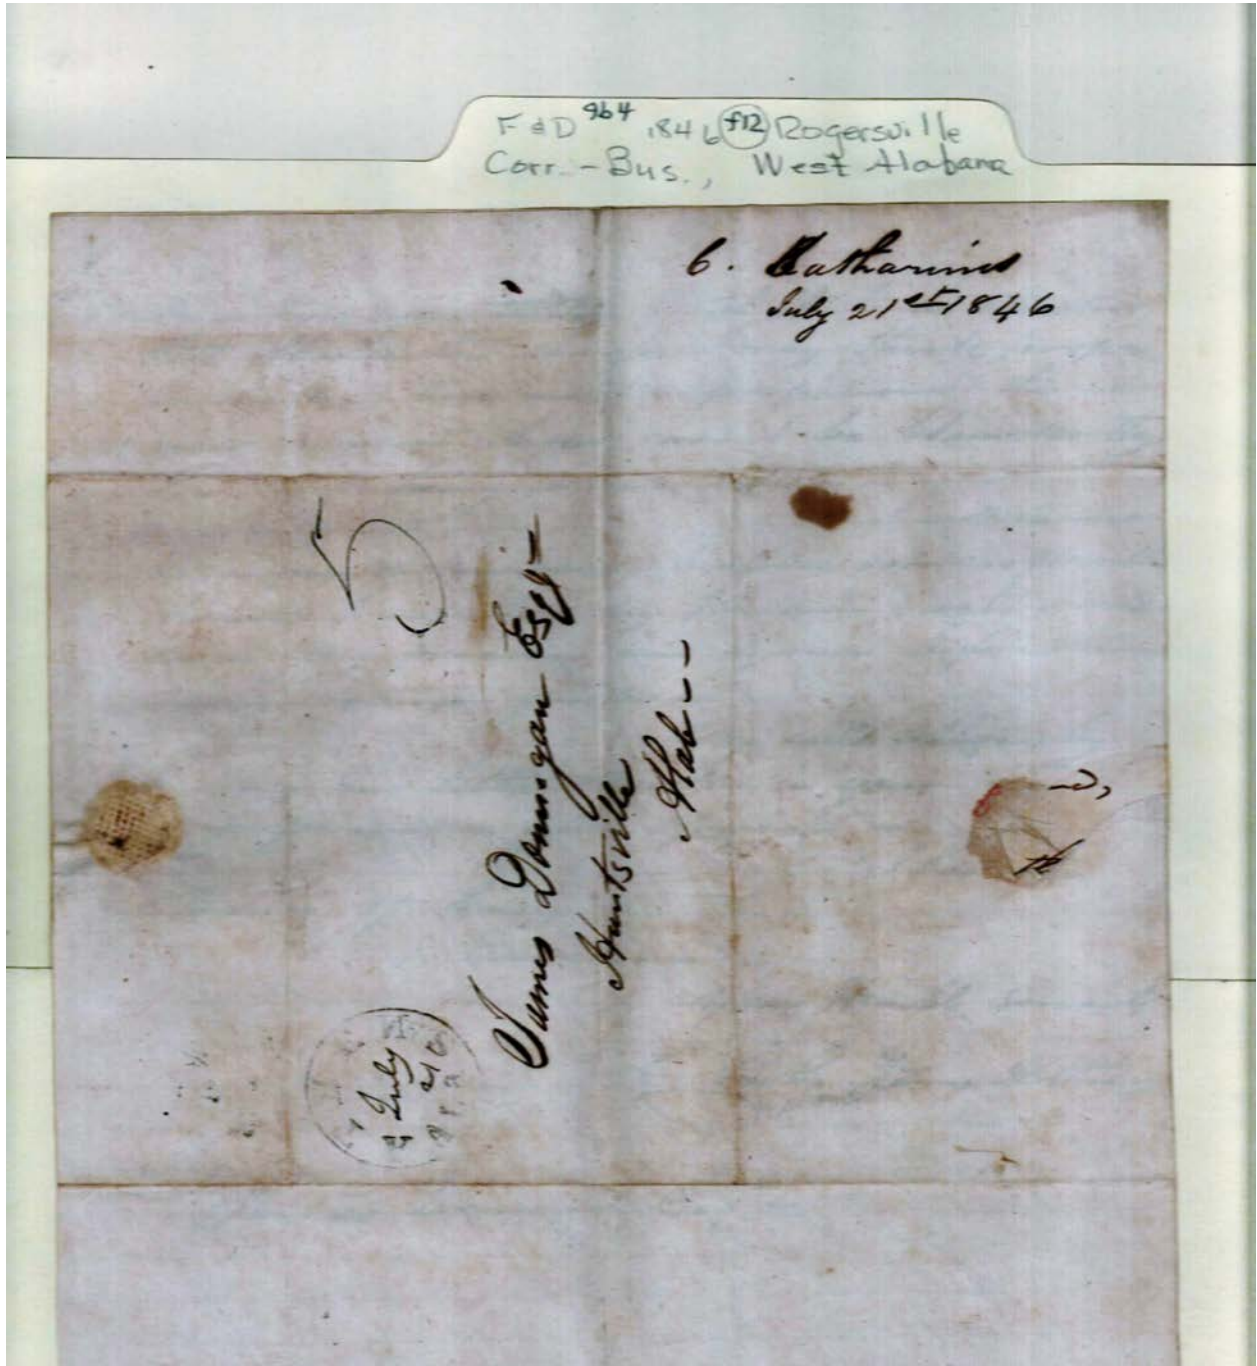 F & D 964 1846 f12 Rogersville
Corr. - Bus., West Alabama
6. Catharines
July 21st 1846
5
James Donnegan Esqr
Huntsville
Alab
July
21